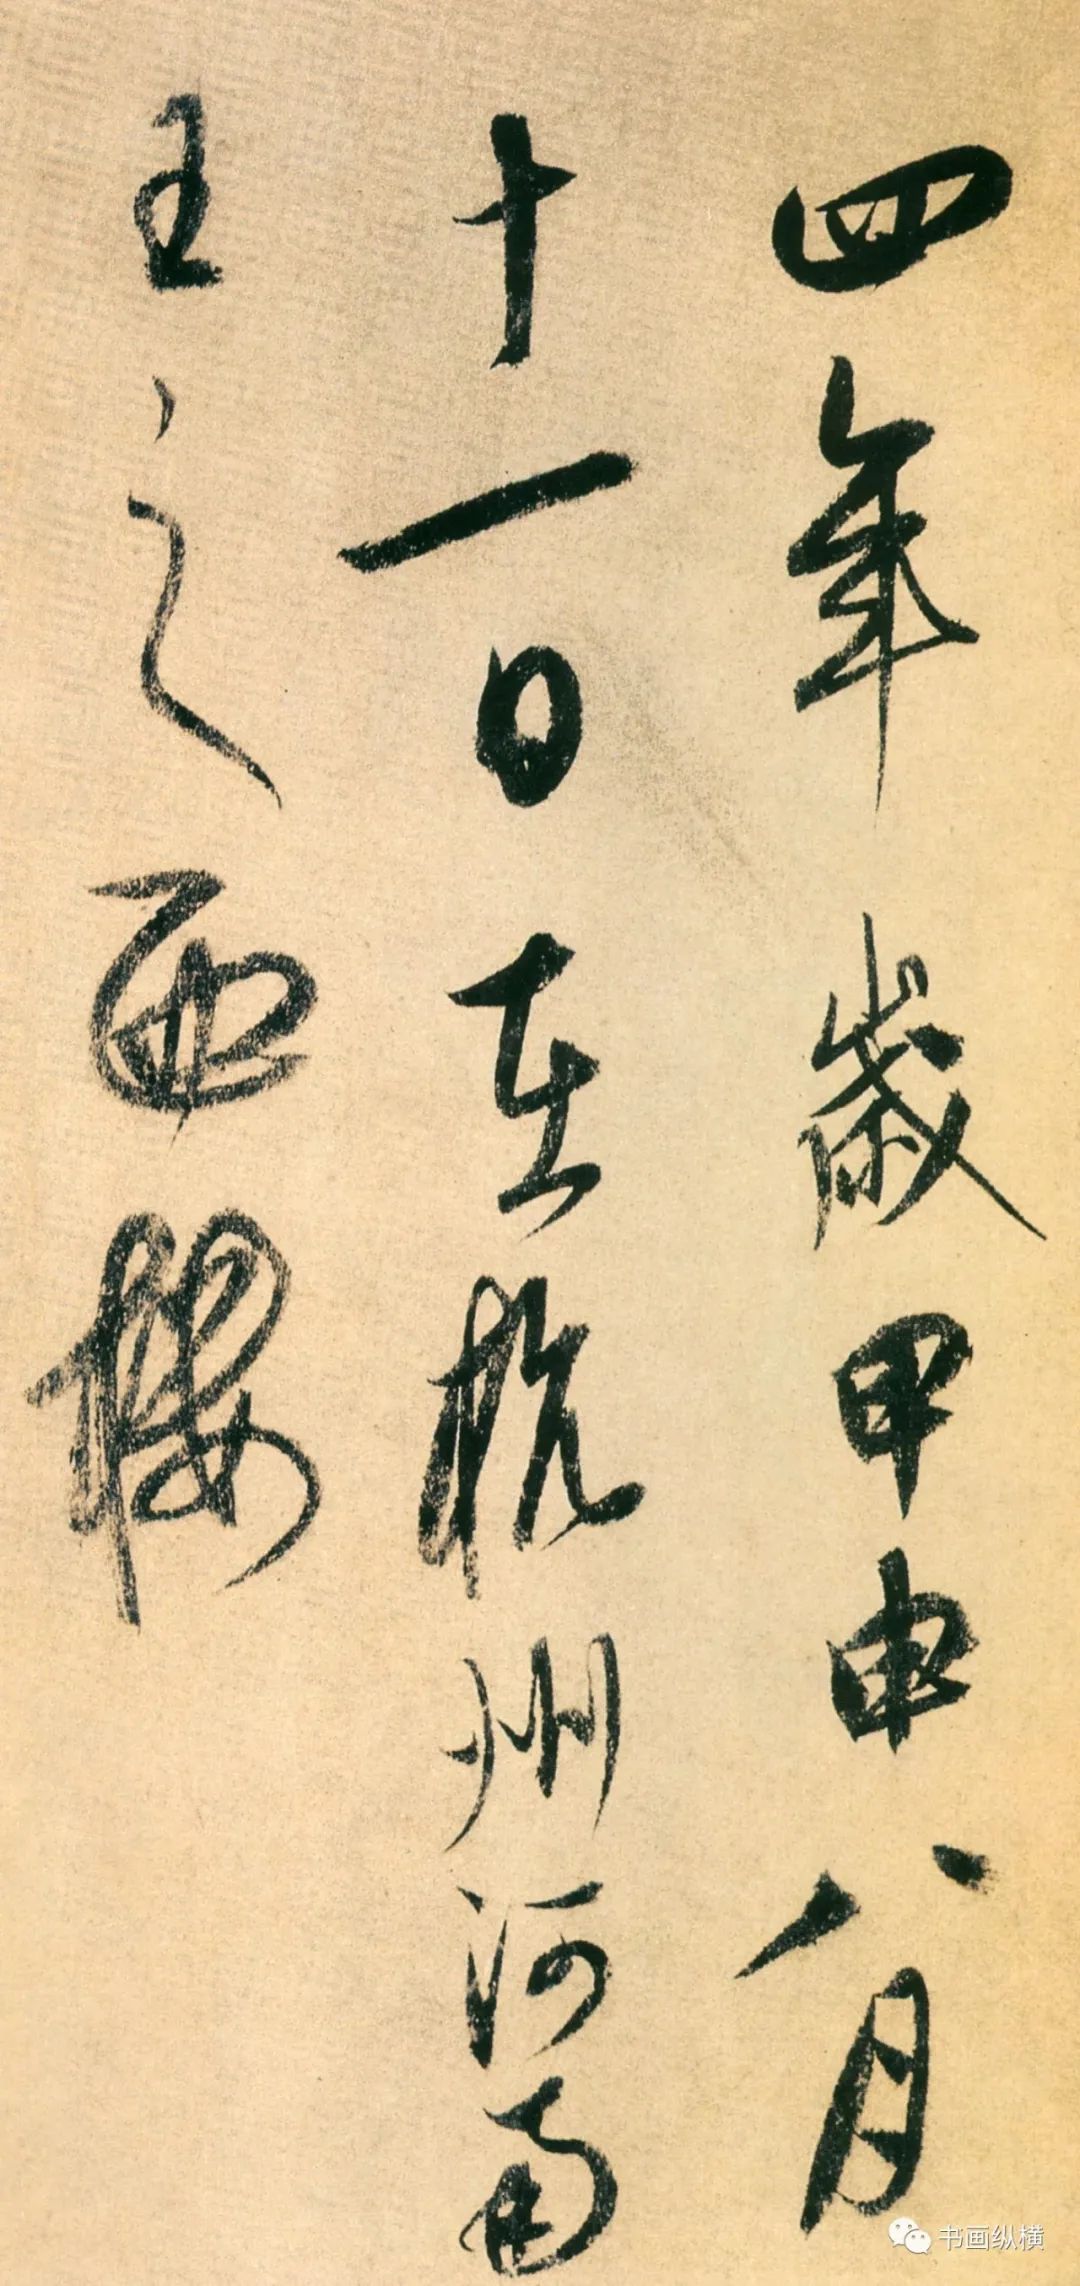 四年歲甲申八月
十一日在杭州河南
王之西樓
书画纵横